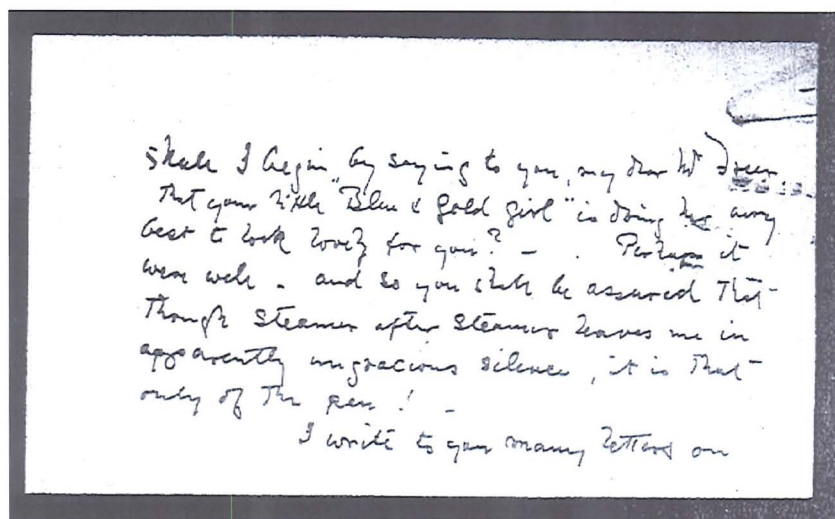 Shall I begin by saying to you, my dear Mr Freer
that your little "Blue & Gold girl" is doing her very
best to look lovely for you? — . Perhaps it
were well – and so you shall be assured that –
though steamer after steamer leaves me in
apparently ungracious silence, it is that –
only of the pen! –
I write to you many letters on